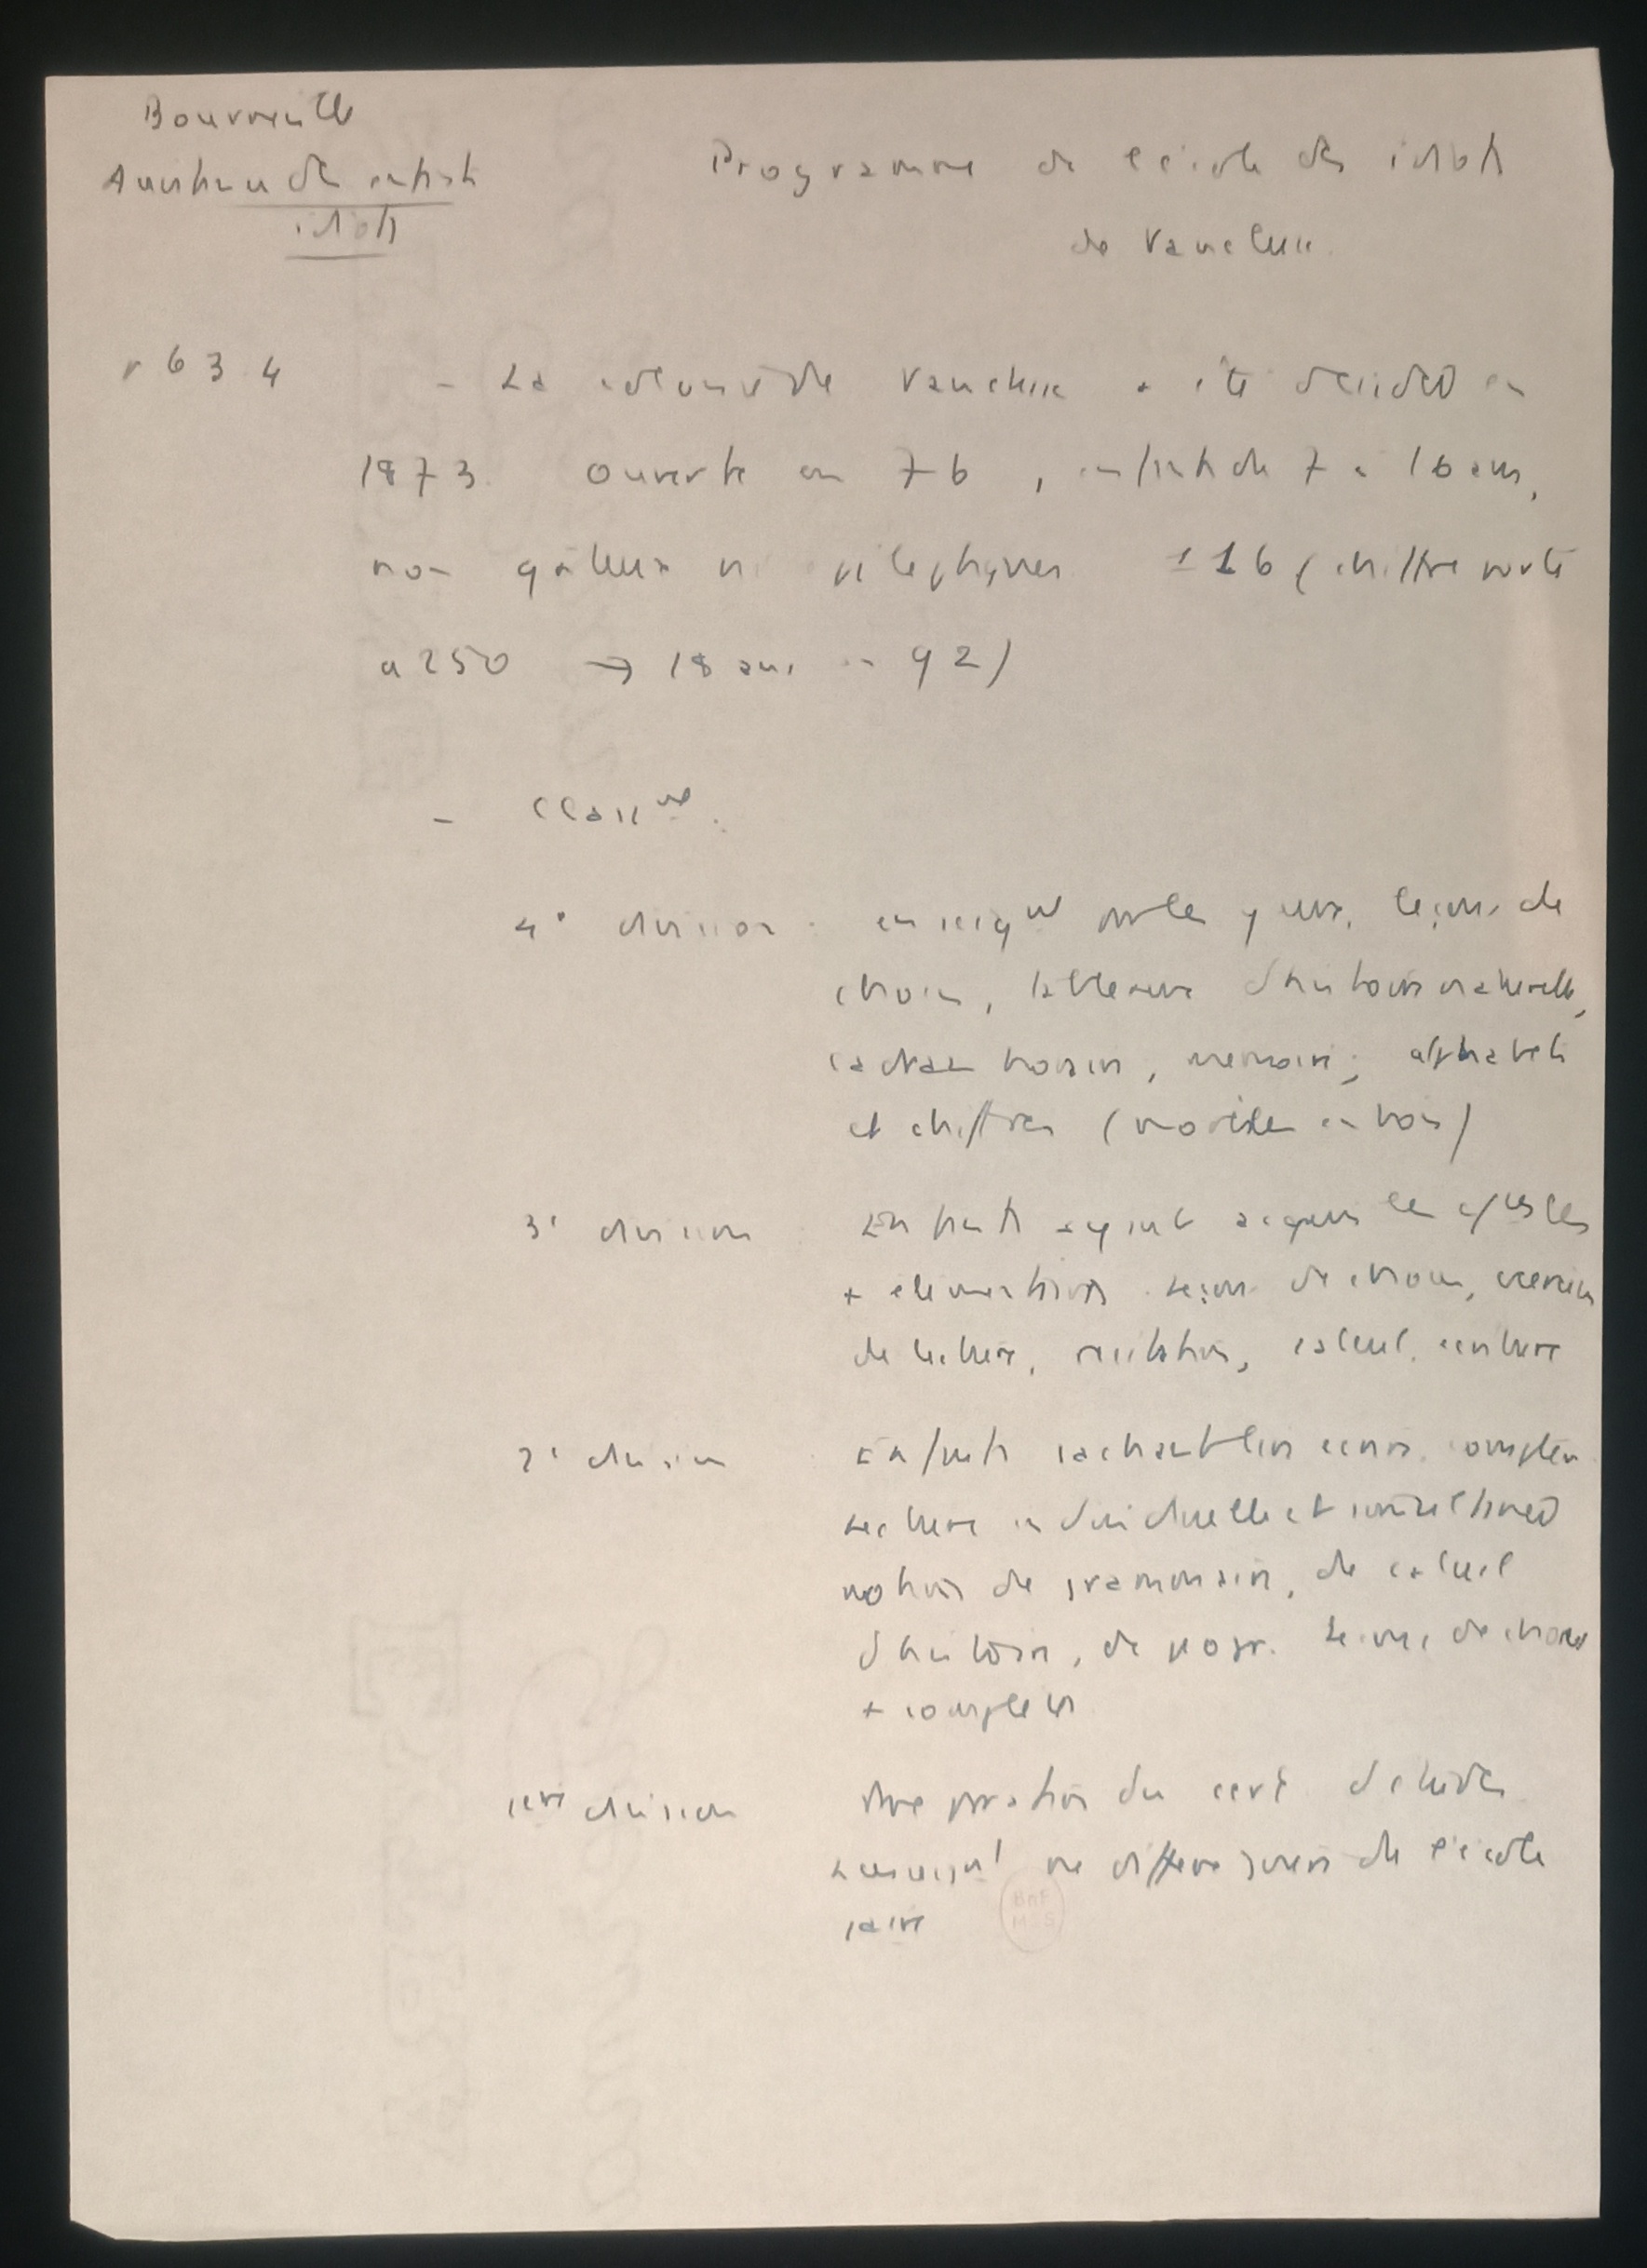 Bourneville
Assistance des enfants
idiots
Programme de l'école des idiots
de Vaucluse.
p 63 4
- La colonie de Vaucluse a été décidée en
1873. Ouverte en 76, enfants de 7 à 16 ans,
non gâteux ni épileptiques 116 (chiffre porté
a 250 → 18 ans en 92)
- Classmt.
4e division : enseignt par les yeux, leçons de
choses, tableaux d'histoire naturelle,
cadran horaire, mémoire; alphabets
et chiffres (mobiles en bois)
3e division : Enfants ayant acquis les
+ élémentaires. Leçons de choses, exercices
de lecture, récitation, calcul, écriture
2e division : Enfants sachant lire écrire, compter
Lecture individuelle et simultanée
notions de grammaire, de calcul
d'histoire, de géogr. Leçons de choses
+ complètes
1ère division Préparation du cert. d'études
L'enseignt ne diffère guère de l'école
BnF
MSS